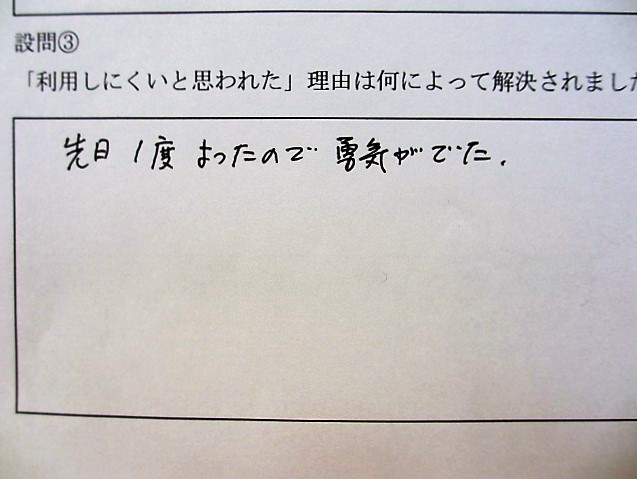 設問③
「利用しにくいと思われた」理由は何によって解決されました
先日 1度 よったので 勇気がでた.